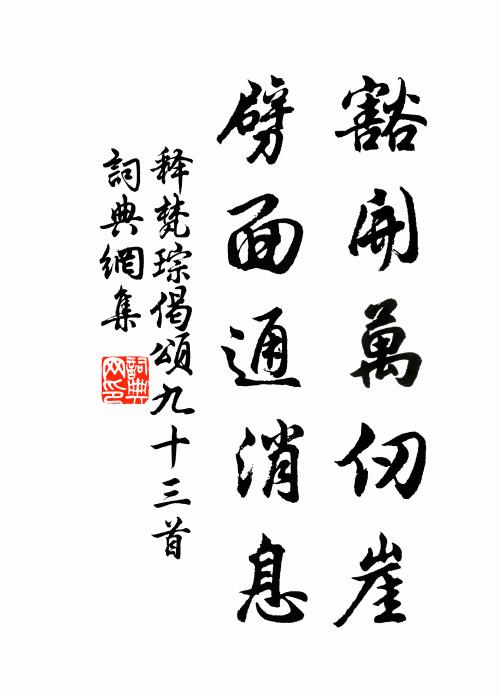 豁開萬仞崖
劈面通消息
釋梵琮偈頌九十三首
詞典網集
詞典網印